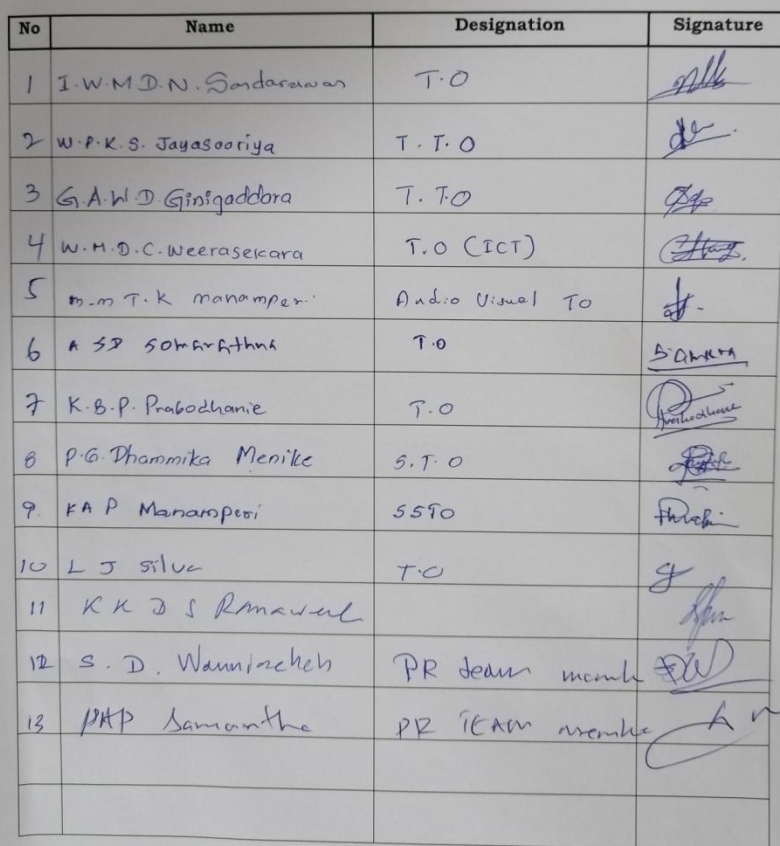 No Name Designation Signature
1 I.W.M.D.N. Sandaruwan T.O
2 W.P.K.S. Jayasooriya T.T.O
3 G.A.W.D. Ginigaddara T.T.O
4 W.M.D.C. Weerasekara T.O (ICT)
5 M.M T.K Manamperi Audio Visual TO
6 A SD Somarathna T.O
7 K.B.P. Prabodhanie T.O
8 P.G. Dhammika Menike S.T.O
9. KAP Manamperi SSTO
10 L J Silva T.O
11 K K D S Ranaweel
12 S. D. PR team
13 PAP Samantha PR TEAM